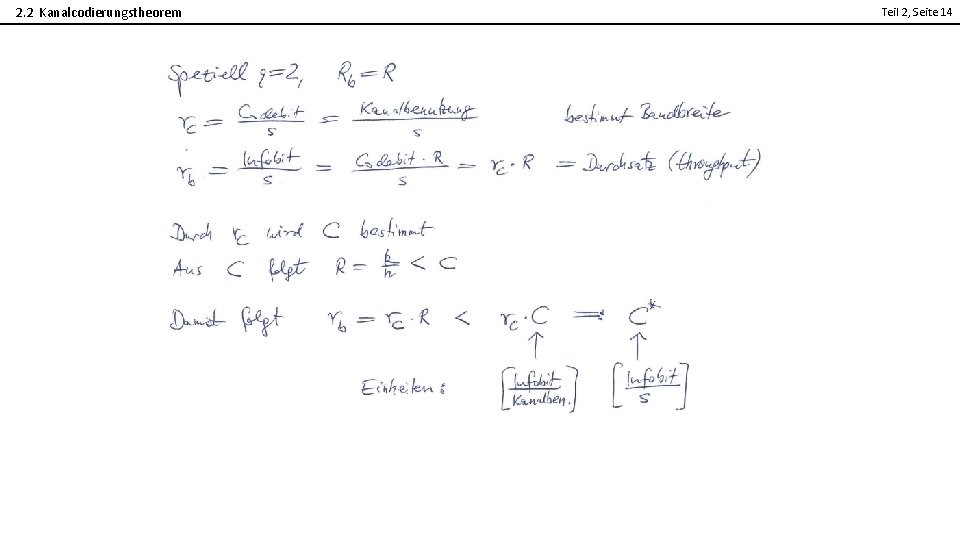 2.2 Kanalcodierungstheorem
Teil 2, Seite 14
Speziell q=2, R_b = R
r_c = Codebit/s = Kanalbenutzung/s bestimmt Bandbreite
r_b = Infobit/s = Codebit · R/s = r_c · R = Durchsatz (throughput)
Durch r_c wird C bestimmt
Aus C folgt R = k/n < C
Damit folgt r_b = r_c · R < r_c · C =: C*
↑ ↑
Einheiten: [Infobit/Kanalben.] [Infobit/s]